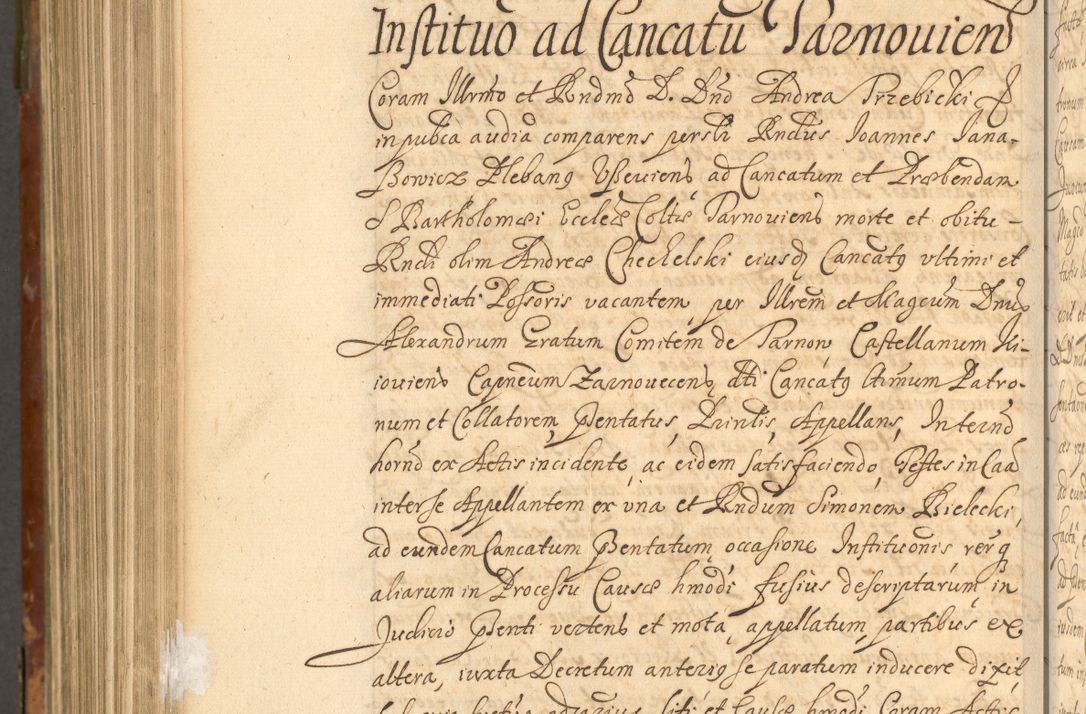 Institūo ad Cancatū Tarnouiens
Coram Illrmo et Rndmo D. Dno Andrea Trzebicki
in pubca audia comparens persli Rndus Ioannes Iana-
Bowicz Plebang Vßeuiens ad Cancatum et Præbendam
S Bartholomæi Eccleæ Coltæ Tarnouiens morte et obitu -
Rndi olim Andreæ Chechelski eiusdq Cancatg vltimi et
immediati Possoris vacantem per Illrem et Magcum Dnum
Alexandrum Gratum Comitem de Tarnow Castellanum Ki-
iouiens Capneum Zarnouecens, dti Cancatg Atinum Patro-
num et Collatorem, Pentatus, Prinlis, Appellans, Internd
hornd ex Actis incidente, ac eidem satisfaciendo, Testes in Caa
inter se Appellantem ex una et Rndum Simonem Bielecki,
ad eundem Cancatum Pentatum, occasione Instituonis rerq
aliarum in Processu Causæ hmodi fusius descriptarum, in
Judicio Penti vertens et mota, appellatum, partibus ex
altera, iuxta Decretum anteriq se paratum inducere dixit
liti et Causæ hmodi Coram Actis